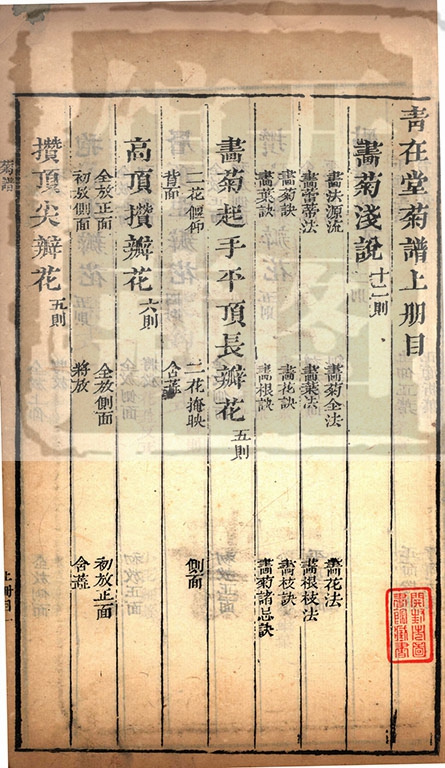 青在堂菊譜上册目
畫菊淺說 十二則
畫法源流 畫菊全法 畫花法
畫蕾蒂法 畫葉法 畫根枝法
畫菊訣 畫花訣 畫枝訣
畫葉訣 畫根訣 畫菊諸忌訣
畫菊起手平頂長瓣花 五則
二花偃仰 二花掩映 側面
背面 含蕊
高頂攢瓣花 六則
全放正面 全放側面 初放正面
初放側面 將放 含蕊
攢頂尖瓣花 五則
菊譜
上册目一